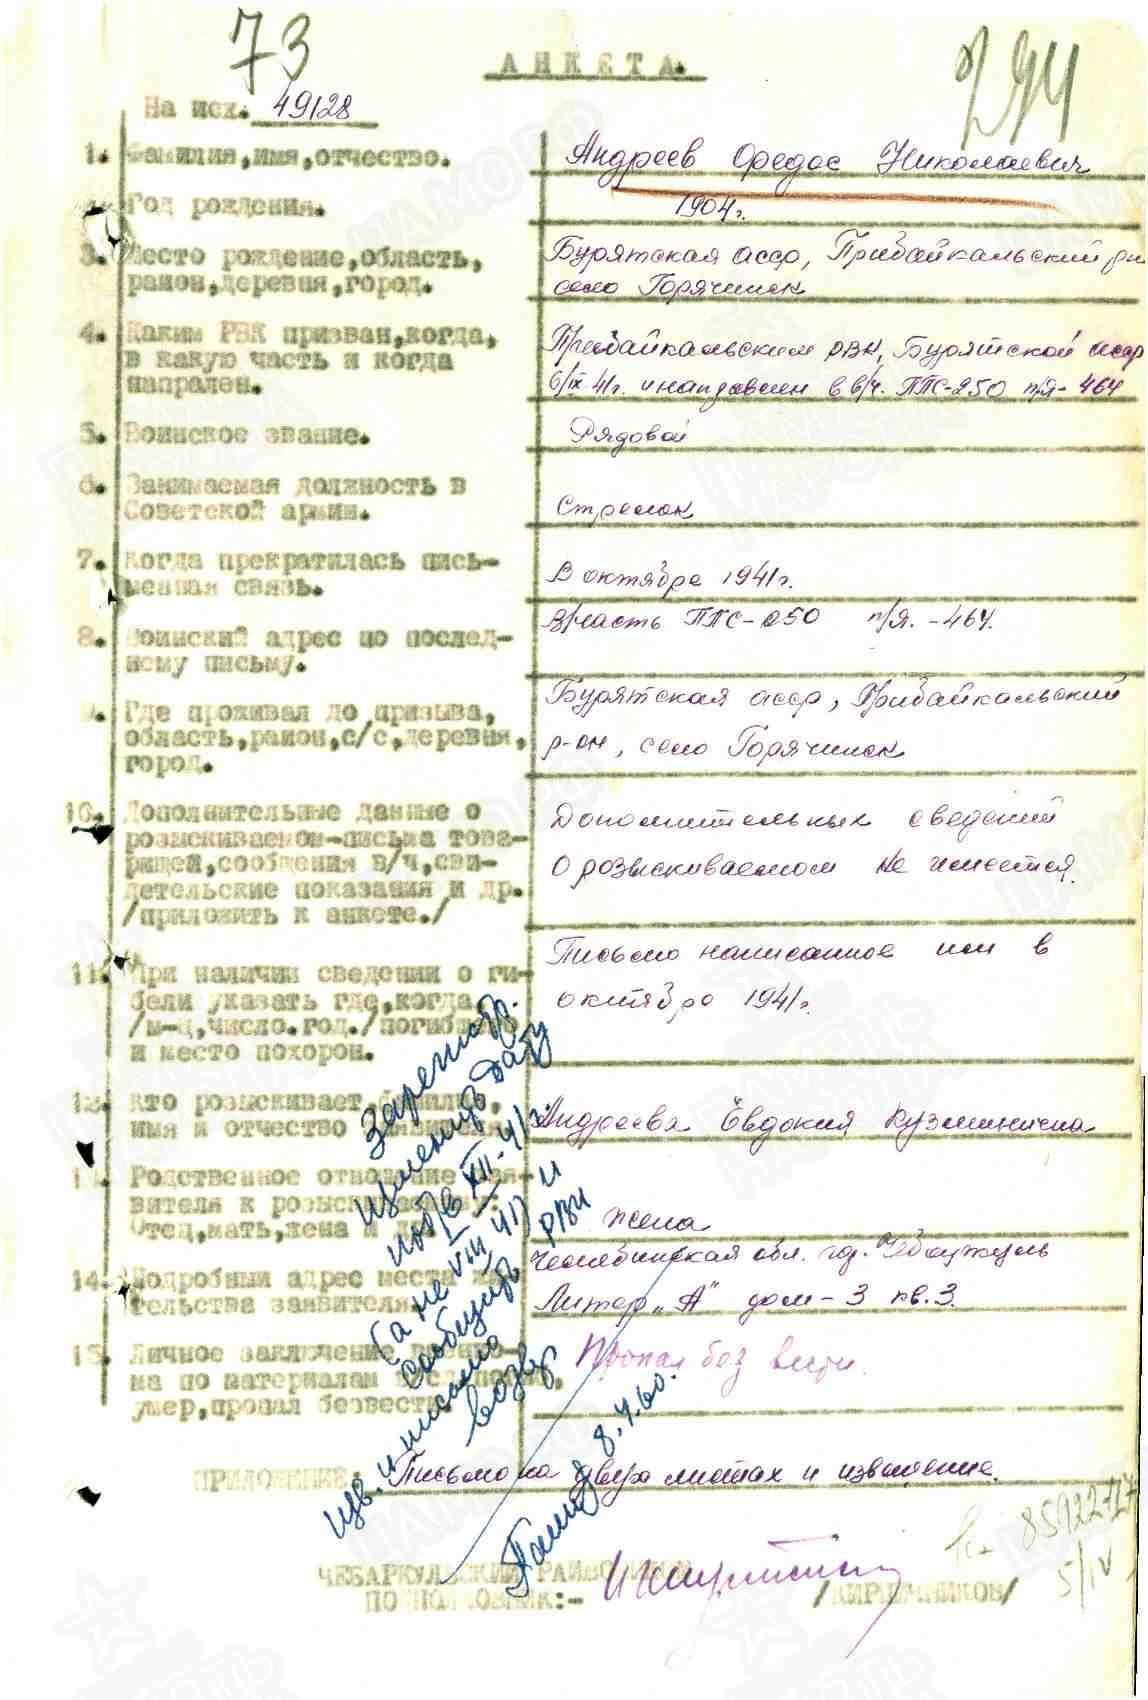 73
АНКЕТА.
На исх. 49128
294
1. Фамилия,имя,отчество.
Андреев Федос Николаевич
Год рождения.
1904г.
3. Место рождение,область,
район,деревня,город.
Бурятская асср, Прибайкальский рн
село Горячинск
4. Каким РВК призван,когда,
в какую часть и когда
напрален.
Прибайкальским РВК, Бурятской асср
6/IX 41г. и направлен в в/ч. ППС-250 п/я-464
5. Воинское звание.
Рядовой
6. Занимаемая должность в
Советской армии.
Стрелок
7. Когда прекратилась пись-
менная связь.
В октябре 1941г.
8. Воинский адрес по послед-
нему письму.
В/часть ППС-250 п/я.-464.
9. Где проживал до призыва,
область,район,с/с,деревня,
город.
Бурятская асср, Прибайкальский
р-он, село Горячинск
10. Дополнительные данные о
розыскиваемом-письма това-
рищей,сообщения в/ч,сви-
детельские показания и др.
/приложить к анкете./
Дополнительных сведений
о розыскиваемом не имеется.
11. При наличии сведении о ги-
бели указать где,когда
/м-ц,число.год./погиб
и место похорон.
Письмо написанное им в
октябре 1941г.
12. Кто розыскивает,фамилия,
имя и отчество заявителя
Андреева Евдокия Кузминична
13. Родственное отношение зая-
вителя к розыскиваемому:
Отец,мать,жена и др.
жена
14. Подробный адрес места жи-
тельства заявителя
Челябинская обл. гор. Чебаркуль
Литер "А" дом-3 кв.3.
15. Личное заключение военко-
ма по материалам
умер,пропал безвести
Пропал без вести.
Зарегистр.
изменив дату
XII-41г.
(а не VIII 41) и
сообщить РВК
изв. и письмо
возвр
8.4.60.
ПРИЛОЖЕНИЕ: Письмо на двух листах и извещение.
85922717
5/IV
ЧЕБАРКУЛЬСКИЙ РАЙВОЕНКОМ
ПОДПОЛКОВНИК:-
/КИРПИЧНИКОВ/